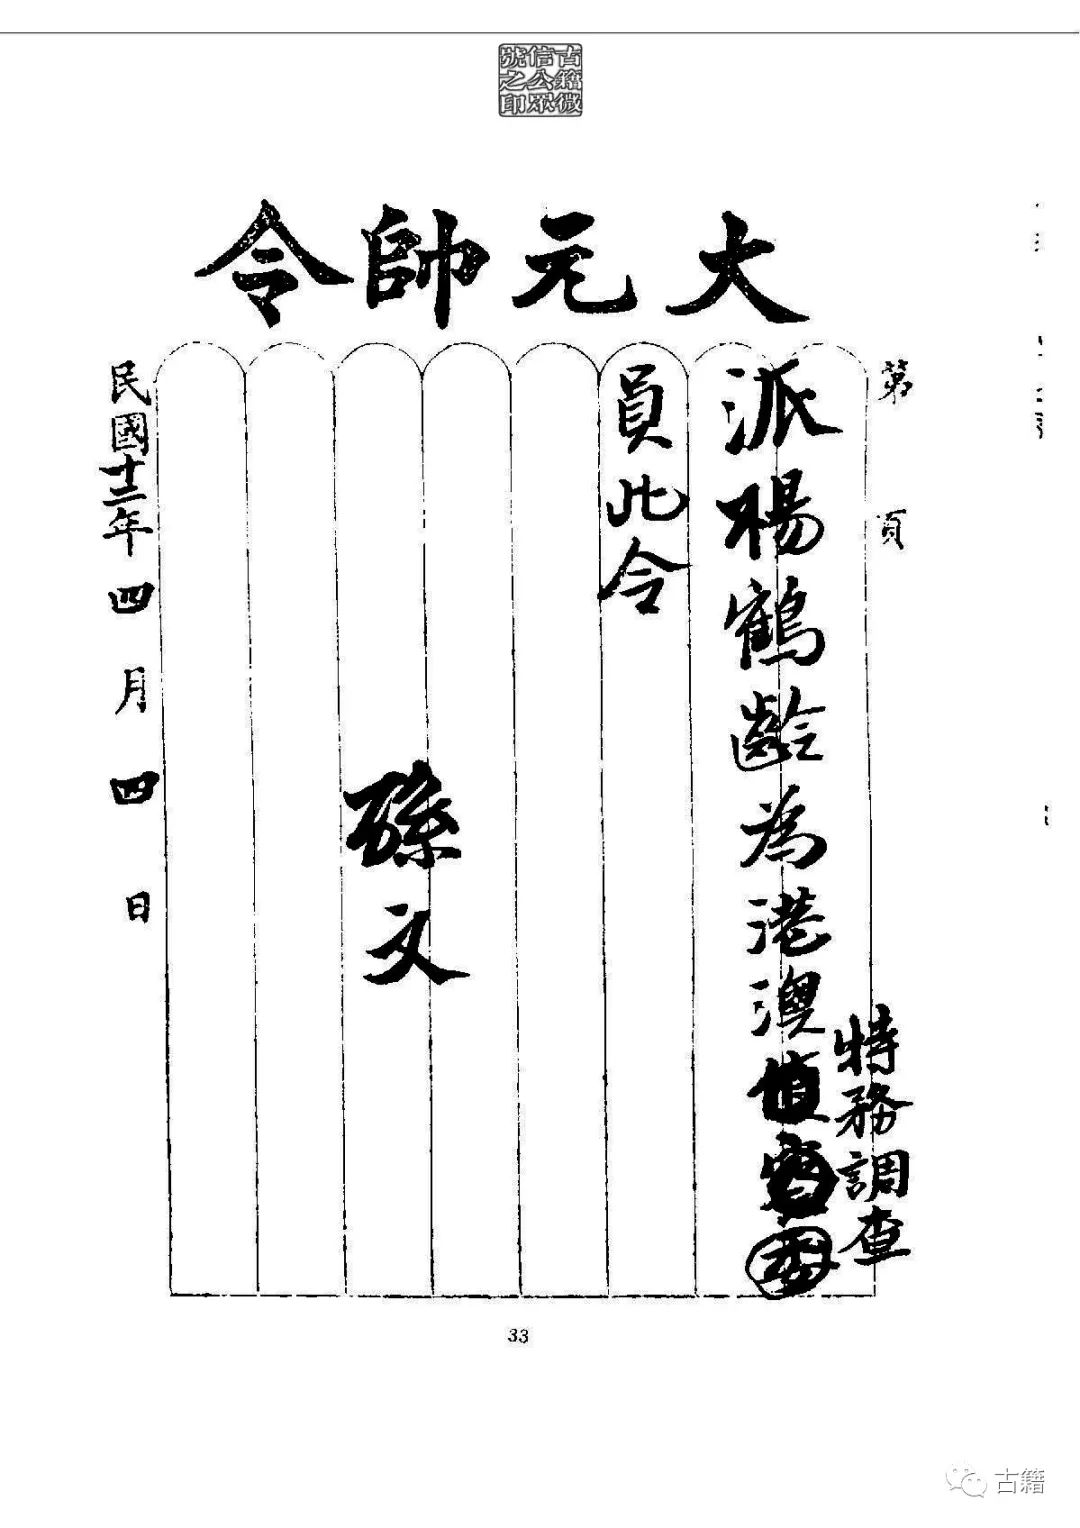 古籍微
信公眾
號之印
大元帥令
第 頁
派楊鶴齡為港澳偵密
特務調查
員此令
孫文
民國十二年四月四日
33
古籍